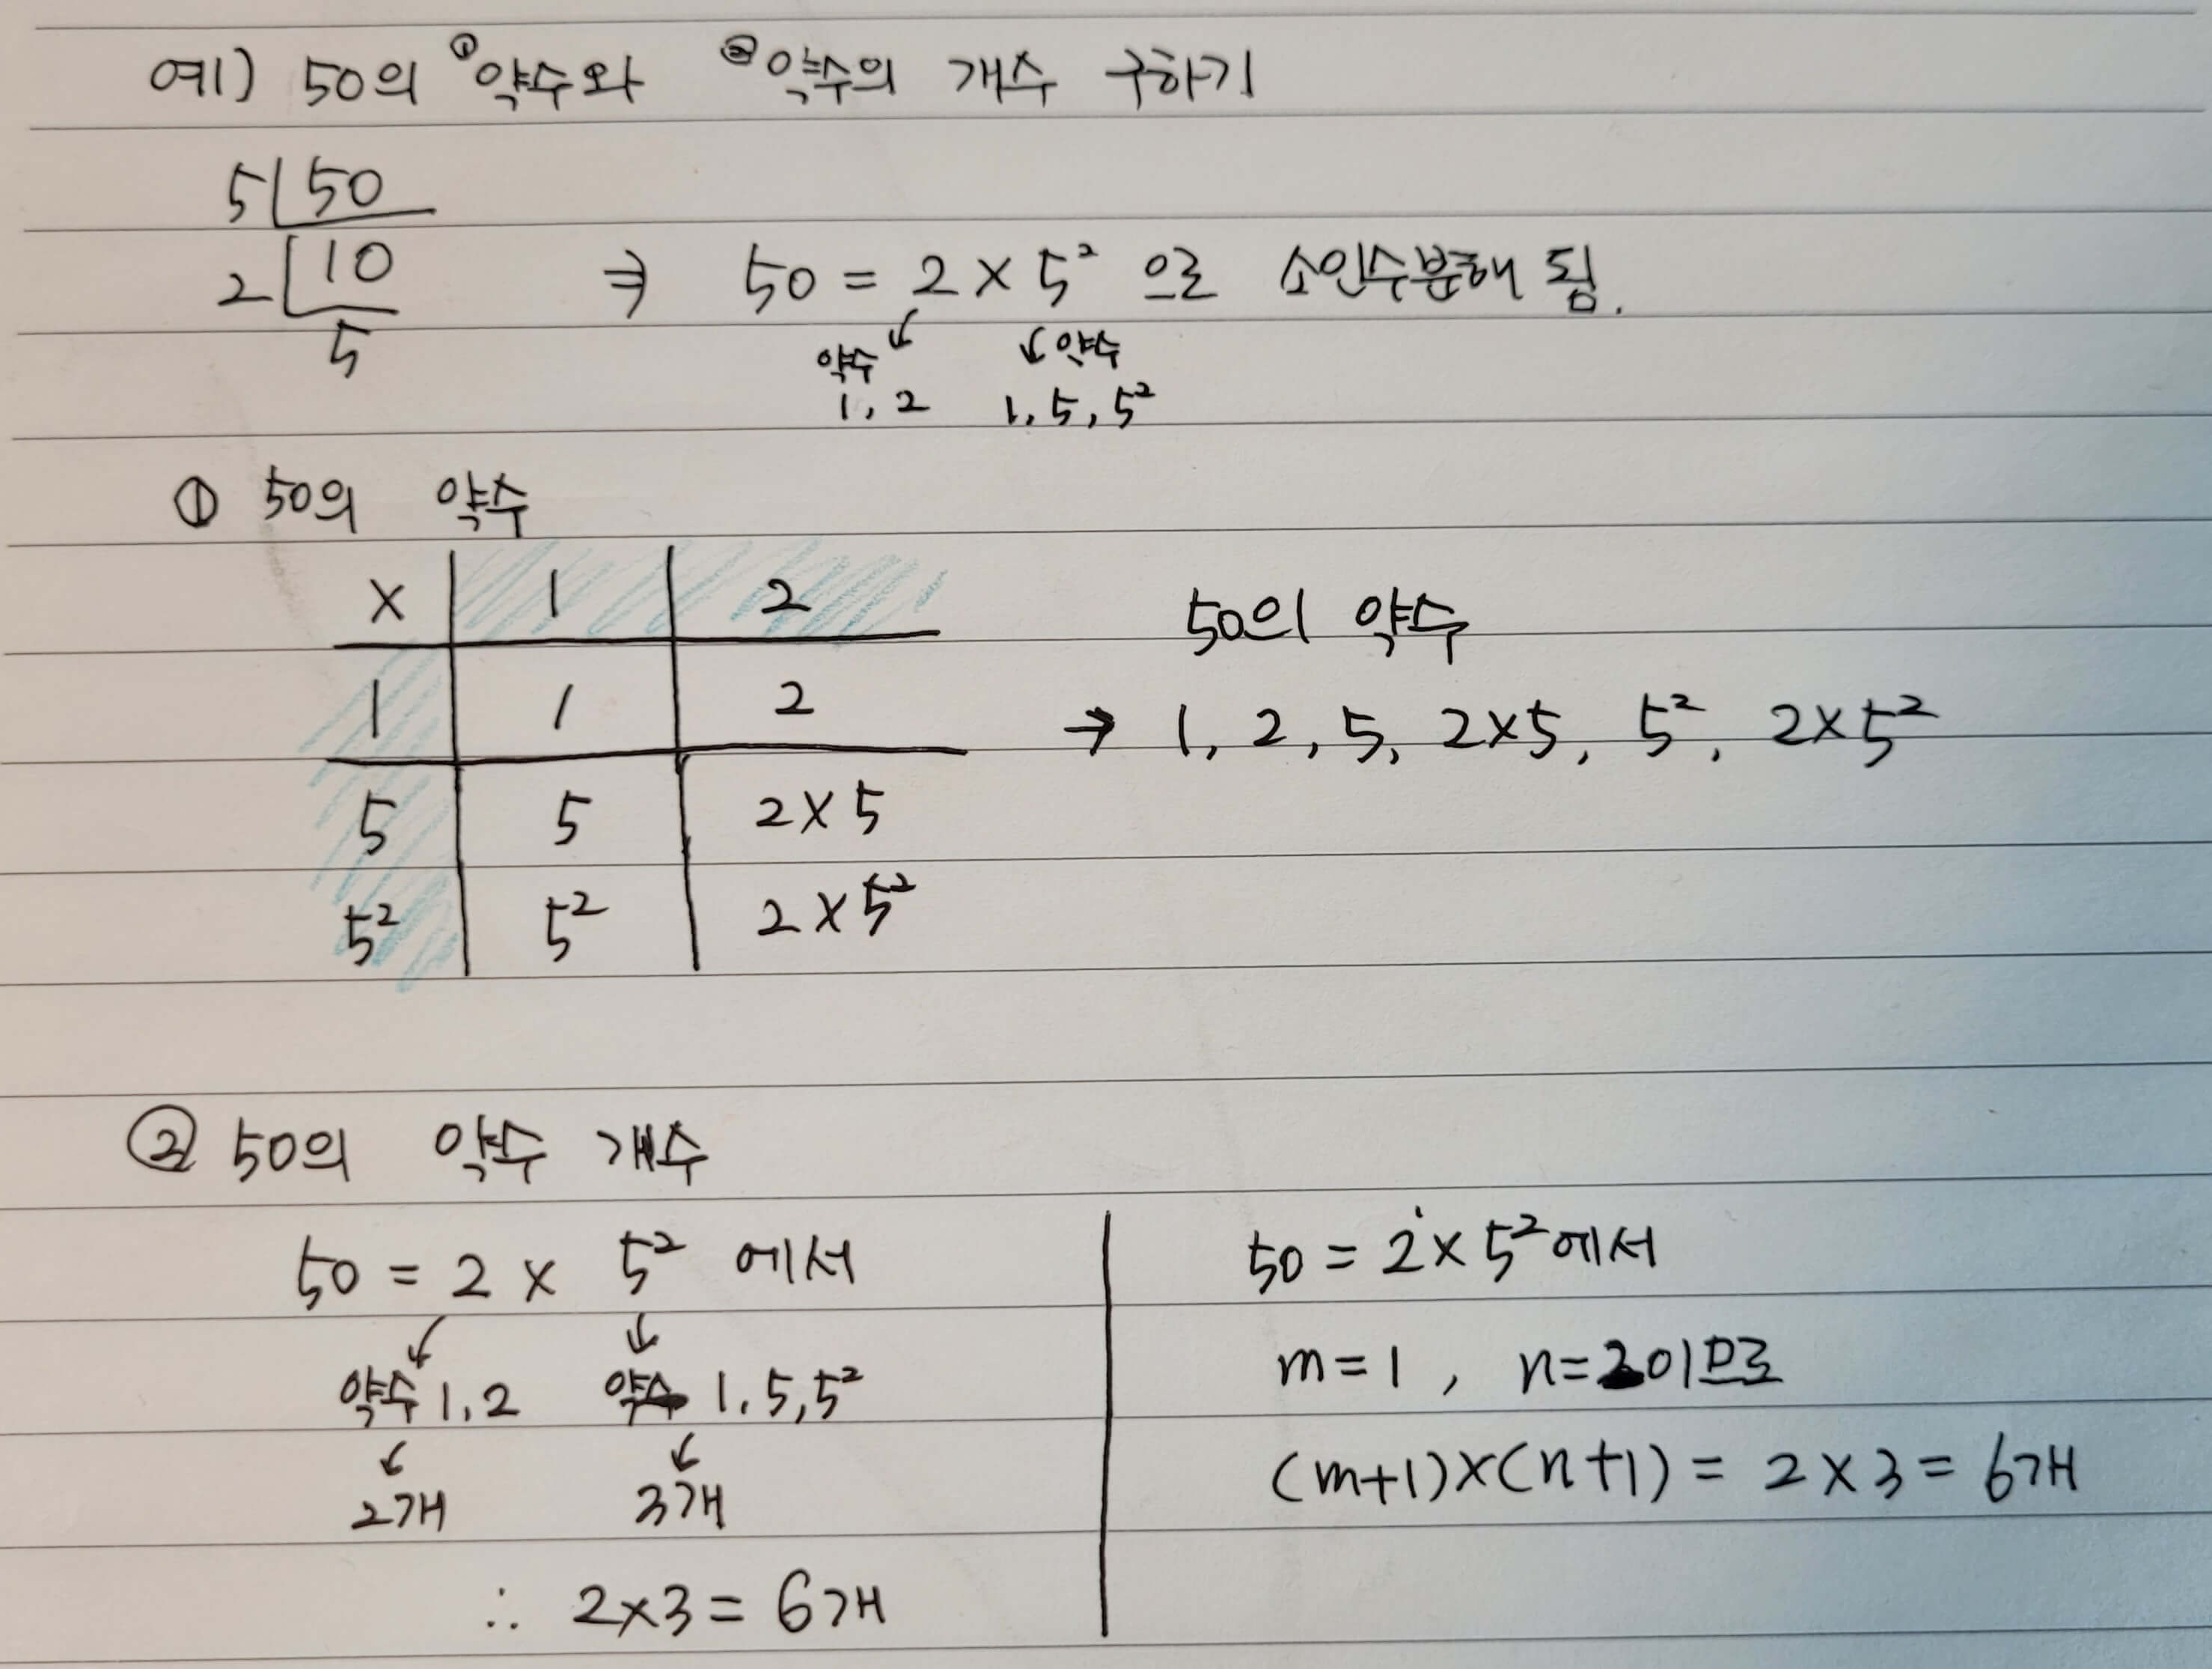 예) 50의 ①약수와 ②약수의 개수 구하기
5 50
2 10
5
⇒ 50 = 2 × 5² 으로 소인수분해 됨.
약수 약수
1, 2 1, 5, 5²
① 50의 약수
× 1 2
1 1 2
5 5 2×5
5² 5² 2×5²
50의 약수
→ 1, 2, 5, 2×5, 5², 2×5²
② 50의 약수 개수
50 = 2 × 5² 에서
약수 1, 2 약수 1, 5, 5²
2개 3개
∴ 2×3 = 6개
50 = 2×5²에서
m=1, n=2이므로
(m+1)×(n+1) = 2×3 = 6개